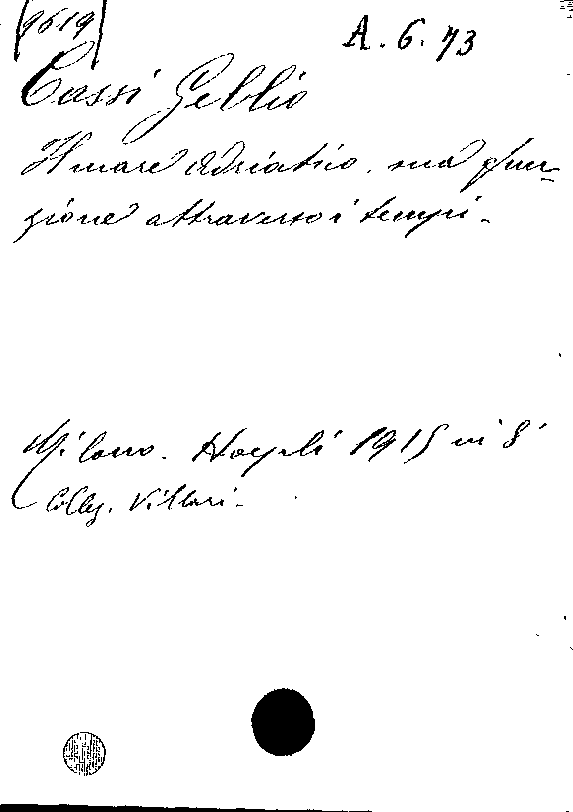 9619
A. 6. 73
Cassi Gellio
Il mare Adriatico. sua fun-
zione attraverso i tempi.
Milano. Hoepli 1915 in 8°
(Colleg. Villari.